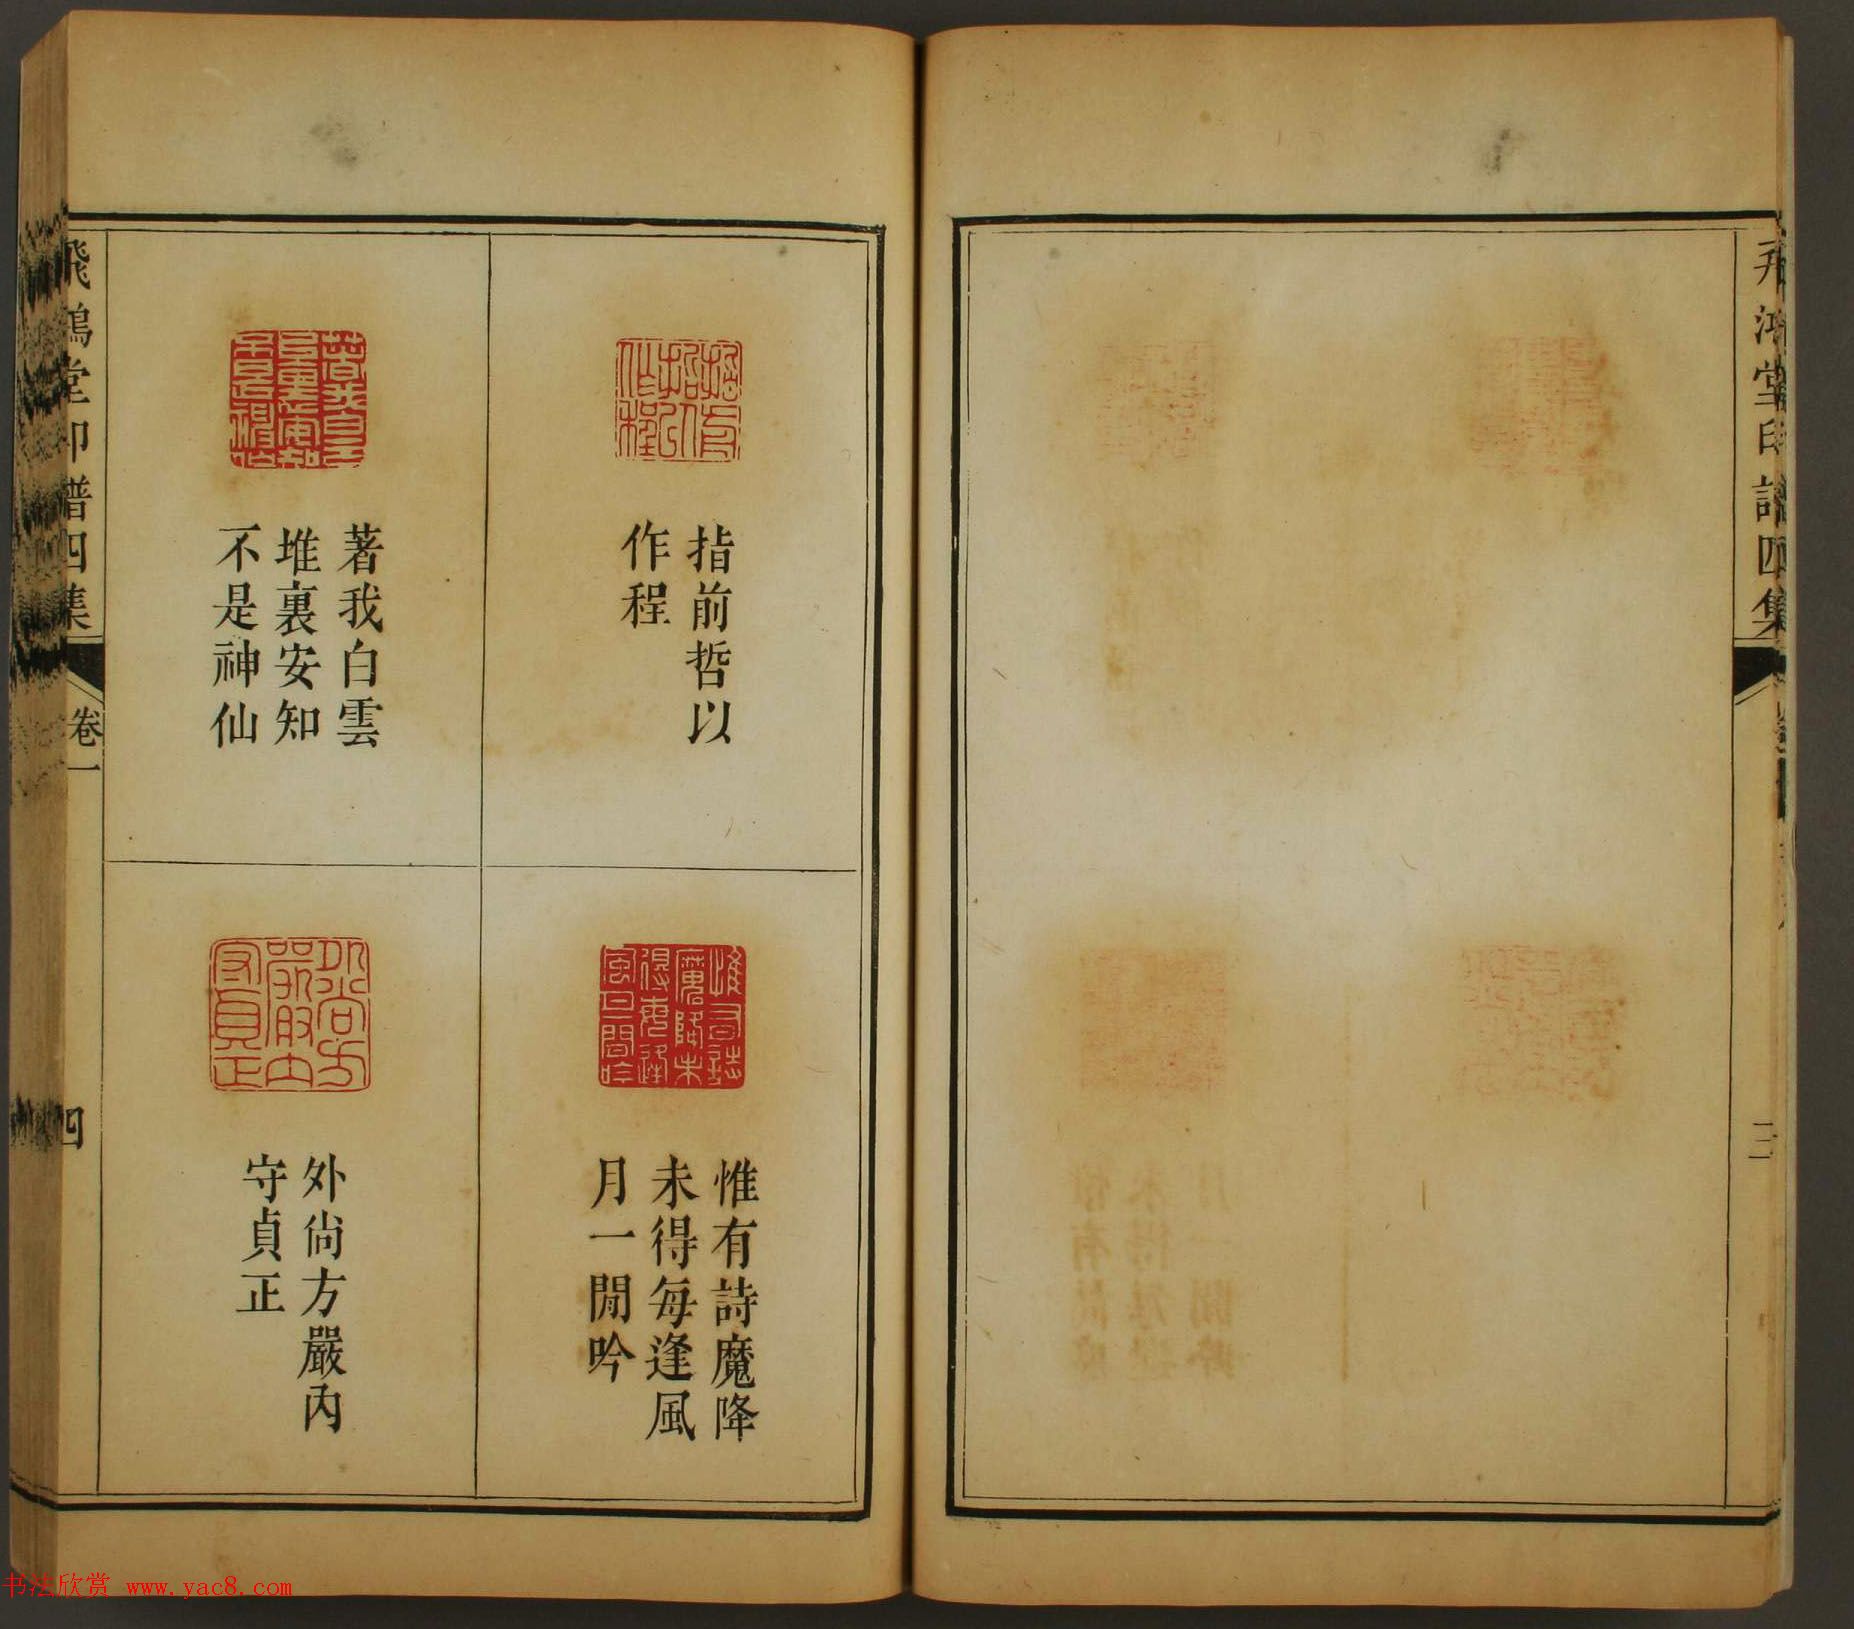 飛鴻堂印譜四集
指前哲以
作程
著我白雲
堆裏安知
不是神仙
惟有詩魔降
未得每逢風
月一閒吟
外尙方嚴內
守貞正
飛鴻堂印譜四集
卷一
四
书法欣赏 www.yac8.com